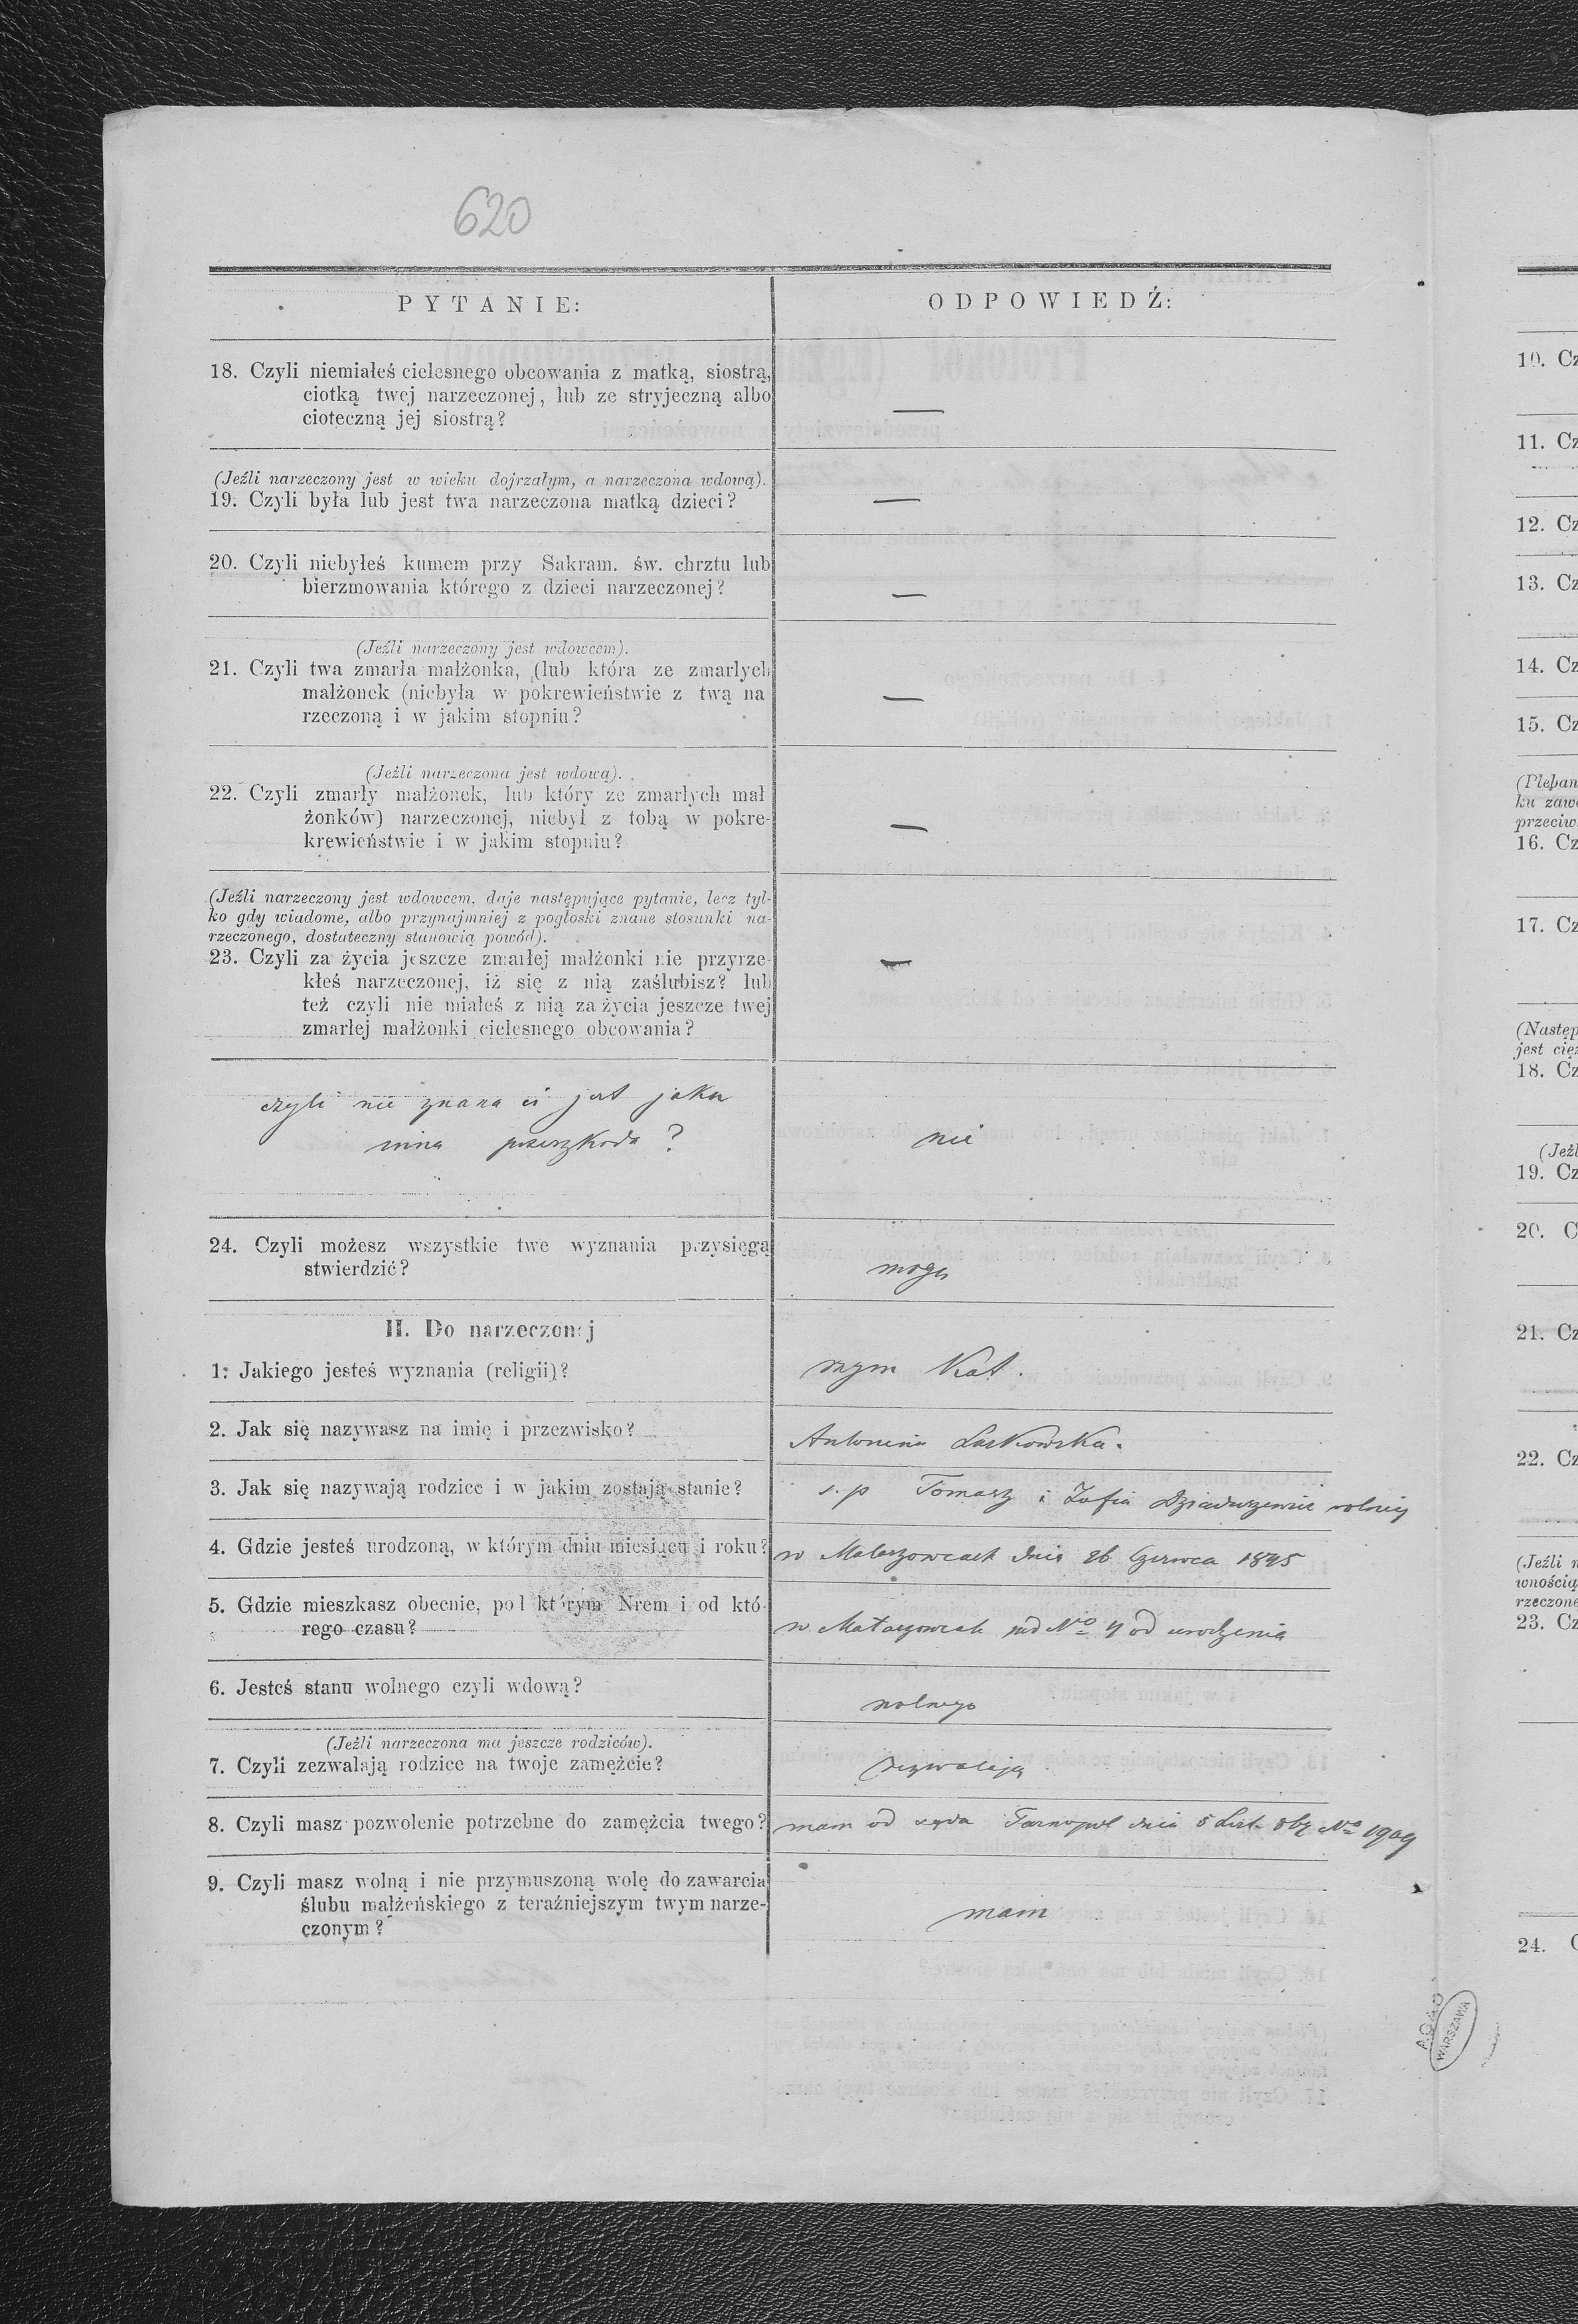 620
PYTANIE:
ODPOWIEDŹ:
18. Czyli niemiałeś cielesnego obcowania z matką, siostrą,
ciotką twej narzeczonej, lub ze stryjeczną albo
cioteczną jej siostrą?
—
(Jeźli narzeczony jest w wieku dojrzałym, a narzeczona wdową).
19. Czyli była lub jest twa narzeczona matką dzieci?
—
20. Czyli niebyłeś kumem przy Sakram. św. chrztu lub
bierzmowania którego z dzieci narzeczonej?
—
(Jeźli narzeczony jest wdowcem).
21. Czyli twa zmarła małżonka, (lub która ze zmarłych
małżonek (niebyła w pokrewieństwie z twą na
rzeczoną i w jakim stopniu?
—
(Jeźli narzeczona jest wdową).
22. Czyli zmarły małżonek, lub który ze zmarłych mał
żonków) narzeczonej, niebył z tobą w pokre-
krewieństwie i w jakim stopniu?
—
(Jeźli narzeczony jest wdowcem, daje następujące pytanie, lecz tyl-
ko gdy wiadome, albo przynajmniej z pogłoski znane stosunki na-
rzeczonego, dostateczny stanowią powód).
23. Czyli za życia jeszcze zmarłej małżonki nie przyrze-
kłeś narzeczonej, iż się z nią zaślubisz? lub
też czyli nie miałeś z nią za życia jeszcze twej
zmarłej małżonki cielesnego obcowania?
—
czyli nie znana ci jest jaka
inna przeszkoda?
nie
24. Czyli możesz wszystkie twe wyznania przysięgą
stwierdzić?
mogę
II. Do narzeczonej
1: Jakiego jesteś wyznania (religii)?
rzym Kat.
2. Jak się nazywasz na imię i przezwisko?
Antonina Laskowska.
3. Jak się nazywają rodzice i w jakim zostają stanie?
s. p Tomasz i Zofia rolnicy
4. Gdzie jesteś urodzoną, w którym dniu miesiącu i roku?
w dnia 26 Czerwca 1845
5. Gdzie mieszkasz obecnie, pod którym Nrem i od któ-
rego czasu?
w pod No 4 od urodzenia
6. Jesteś stanu wolnego czyli wdową?
wolnego
(Jeźli narzeczona ma jeszcze rodziców).
7. Czyli zezwalają rodzice na twoje zamężcie?
zezwalają
8. Czyli masz pozwolenie potrzebne do zamężcia twego?
mam od sąda Tarnopol dnia 5 List. No 1909
9. Czyli masz wolną i nie przymuszoną wolę do zawarcia
ślubu małżeńskiego z teraźniejszym twym narze-
czonym?
mam
10. Cz
11. Cz
12. Cz
13. Cz
14. Cz
15. Cz
(Pleban
ku zawa
przeciw
16. Cz
17. Cz
(Następ
jest cięż
18. Cz
(Jeźl
19. Cz
20. C
21. Cz
22. Cz
(Jeźli n
wnością
rzeczone
23. Cz
24. C
AGAD
WARSZAWA